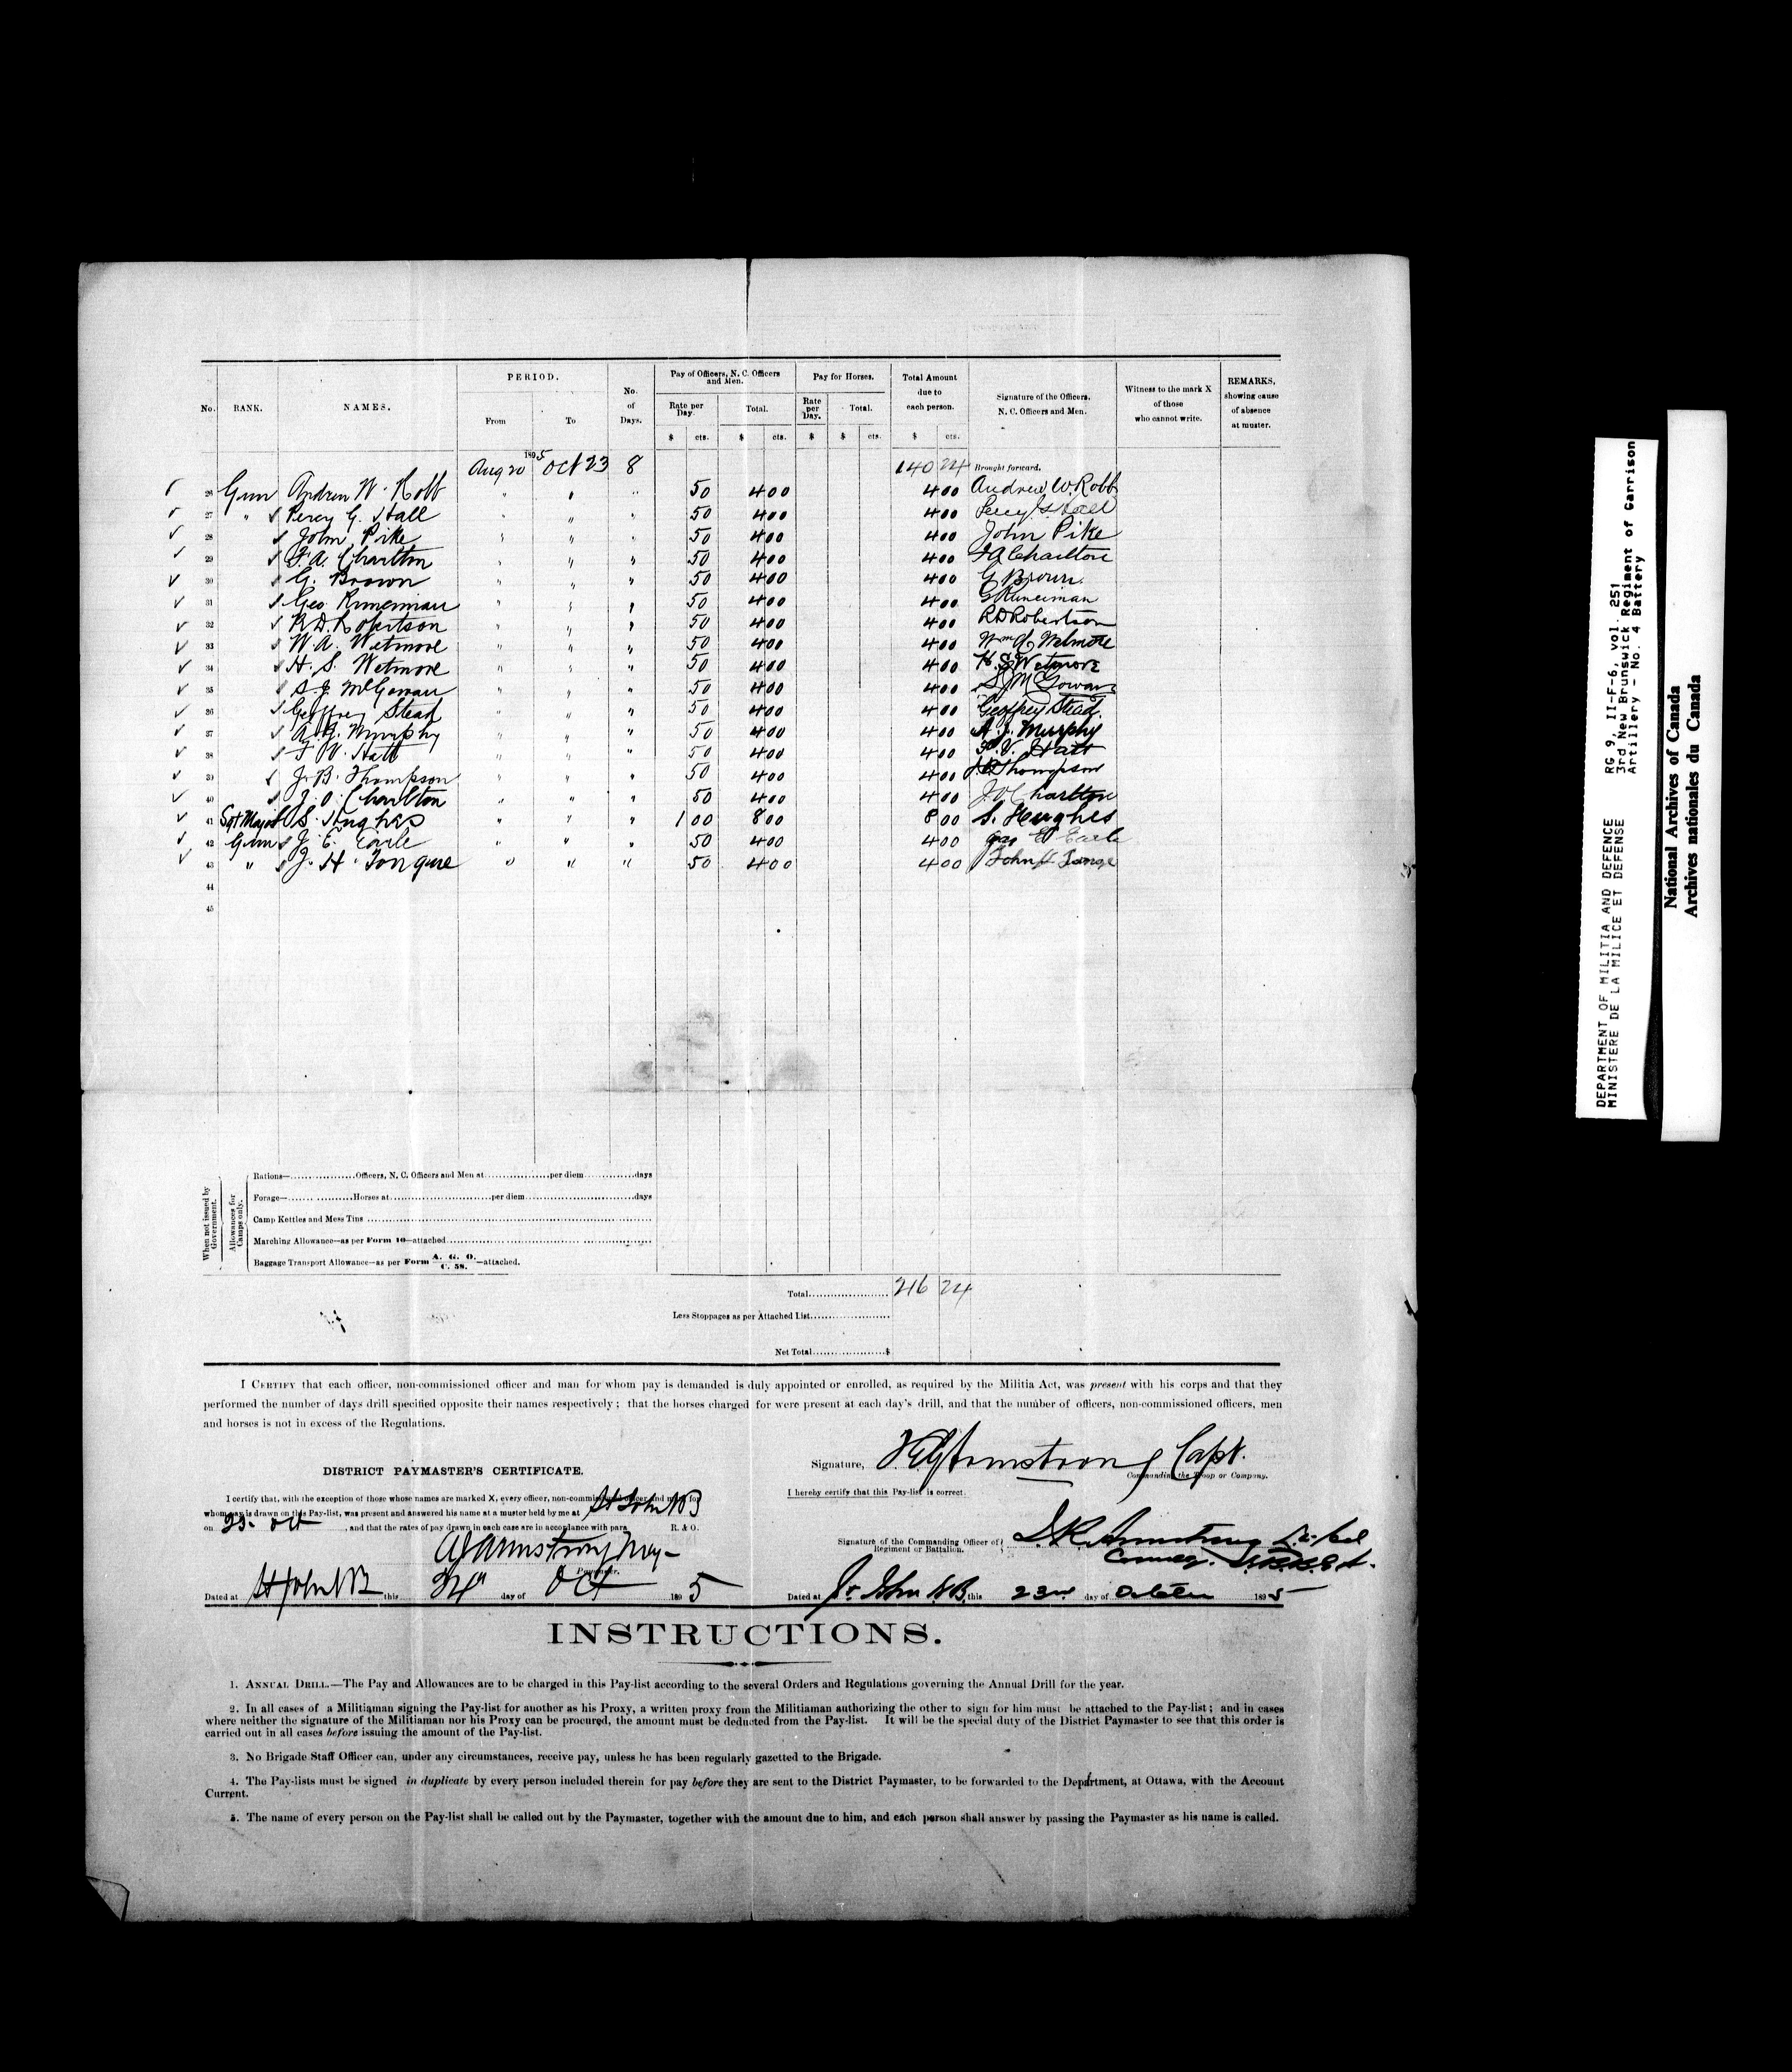 No. RANK. NAMES. PERIOD. No. of Days. Pay of Officers, N. C. Officers and Men. Pay for Horses. Total Amount due to each person. Signature of the Officers, N. C. Officers and Men. Witness to the mark X of those who cannot write. REMARKS, showing cause of absence at muster.
From To Rate per Day. Total. Rate per Day. Total.
$ cts. $ cts. $ $ cts. $ cts.
Aug 20 1895 Oct 23 8 140 24 Brought forward.
26 Gun Andrew W. Robb " " " 50 4 00 4 00 Andrew W. Robb
27 " Percy G. Hall " " " 50 4 00 4 00 Percy G Hall
28 John Pike " " " 50 4 00 4 00 John Pike
29 F. A. Charlton " " " 50 4 00 4 00 F A Charlton
30 G. Brown " " " 50 4 00 4 00 G Brown.
31 Geo Runciman " " " 50 4 00 4 00 G Runciman
32 R. D. Robertson " " " 50 4 00 4 00 R D Robertson
33 W. A. Wetmore " " " 50 4 00 4 00 Wm A Wetmore
34 H. S. Wetmore " " " 50 4 00 4 00 H. S Wetmore
35 S. J. McGowan " " " 50 4 00 4 00 S J McGowan
36 Geoffrey Stead " " " 50 4 00 4 00 Geoffrey Stead.
37 A. J. Murphy " " " 50 4 00 4 00 A. J. Murphy
38 F. V. Hatt " " " 50 4 00 4 00 F. V. Hatt
39 J. B. Thompson " " " 50 4 00 4 00 J B Thompson
40 J. O. Charlton " " " 50 4 00 4 00 J. O Charlton
41 Sgt Major S. Hughes " " " 1 00 8 00 8 00 S. Hughes
42 Gun J. E. Earle " " " 50 4 00 4 00 Jas E Earle
43 " J. H. Tongue " " " 50 4 00 4 00 John H
44
45
When not issued by Government.
Allowances for Camps only.
Rations—........Officers, N. C. Officers and Men at........per diem........days
Forage—........Horses at........per diem........days
Camp Kettles and Mess Tins........
Marching Allowance—as per Form 10—attached........
Baggage Transport Allowance—as per Form A. G. O. C. 58. —attached.
Total........ 216 24
Less Stoppages as per Attached List........
Net Total........$
I CERTIFY that each officer, non-commissioned officer and man for whom pay is demanded is duly appointed or enrolled, as required by the Militia Act, was present with his corps and that they
performed the number of days drill specified opposite their names respectively; that the horses charged for were present at each day's drill, and that the number of officers, non-commissioned officers, men
and horses is not in excess of the Regulations.
Signature, Armstrong Capt.
Commanding the Troop or Company.
DISTRICT PAYMASTER'S CERTIFICATE.
I certify that, with the exception of those whose names are marked X, every officer, non-commissioned officer and man for
whom pay is drawn on this Pay-list, was present and answered his name at a muster held by me at St John NB
on 23. Oct, and that the rates of pay drawn in each case are in accordance with para R. & O.
Armstrong
Paymaster.
Dated at St John NB this day of Oct 1895
I hereby certify that this Pay-list is correct.
Signature of the Commanding Officer of Regiment or Battalion. Armstrong Lt. Col
Dated at St. John N.B. this 23rd day of October 1895
INSTRUCTIONS.
1. ANNUAL DRILL.—The Pay and Allowances are to be charged in this Pay-list according to the several Orders and Regulations governing the Annual Drill for the year.
2. In all cases of a Militiaman signing the Pay-list for another as his Proxy, a written proxy from the Militiaman authorizing the other to sign for him must be attached to the Pay-list; and in cases
where neither the signature of the Militiaman nor his Proxy can be procured, the amount must be deducted from the Pay-list. It will be the special duty of the District Paymaster to see that this order is
carried out in all cases before issuing the amount of the Pay-list.
3. No Brigade Staff Officer can, under any circumstances, receive pay, unless he has been regularly gazetted to the Brigade.
4. The Pay-lists must be signed in duplicate by every person included therein for pay before they are sent to the District Paymaster, to be forwarded to the Department, at Ottawa, with the Account
Current.
5. The name of every person on the Pay-list shall be called out by the Paymaster, together with the amount due to him, and each person shall answer by passing the Paymaster as his name is called.
DEPARTMENT OF MILITIA AND DEFENCE
MINISTERE DE LA MILICE ET DEFENSE
RG 9, II-F-6, vol. 251
3rd New Brunswick Regiment of Garrison
Artillery - No. 4 Battery
National Archives of Canada
Archives nationales du Canada